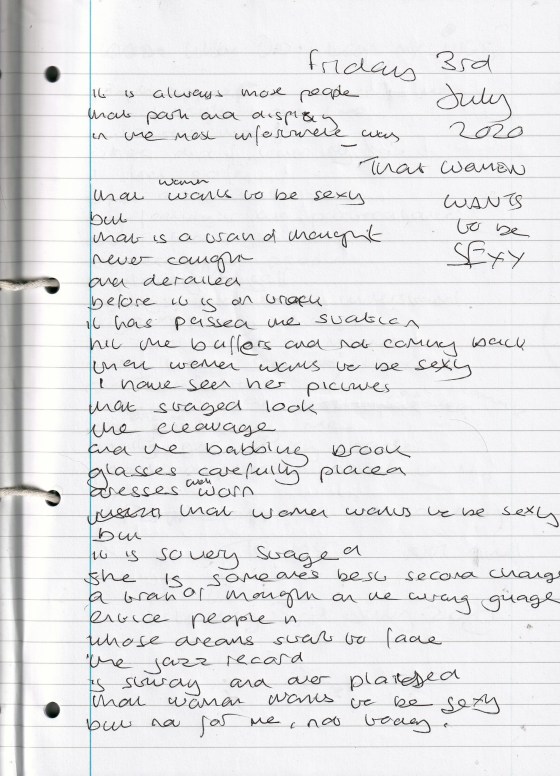 Friday 3rd
July
2020
it is always more people
that park and display
in the most way
That Woman
WANTS
to be
SEXY
that woman wants to be sexy
but
that is a train of thought
never caught
and derailed
before it is on track
it has passed the station
hit the buffers and not coming back
that woman wants to be sexy
I have seen her pictures
that staged look
the cleavage
and the babbling brook
glasses carefully placed
dresses worn
that woman wants to be sexy
but
it is so very staged
she is someones best second change
a train of thought on the wrong guage
entice people in
whose dreams start to fade
the jazz record
is and over played
that woman wants to be sexy
but not for me, not today.